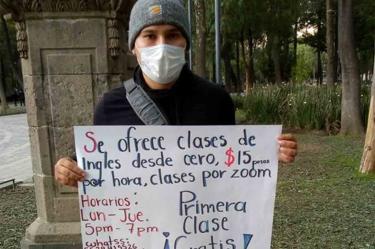 Se ofrece clases de
Ingles desde cero, $15 pesos
por hora, clases por zoom
Horarios:
Lun-Jue.
5pm-7pm
whatss:
Primera
Clase
¡Gratis!